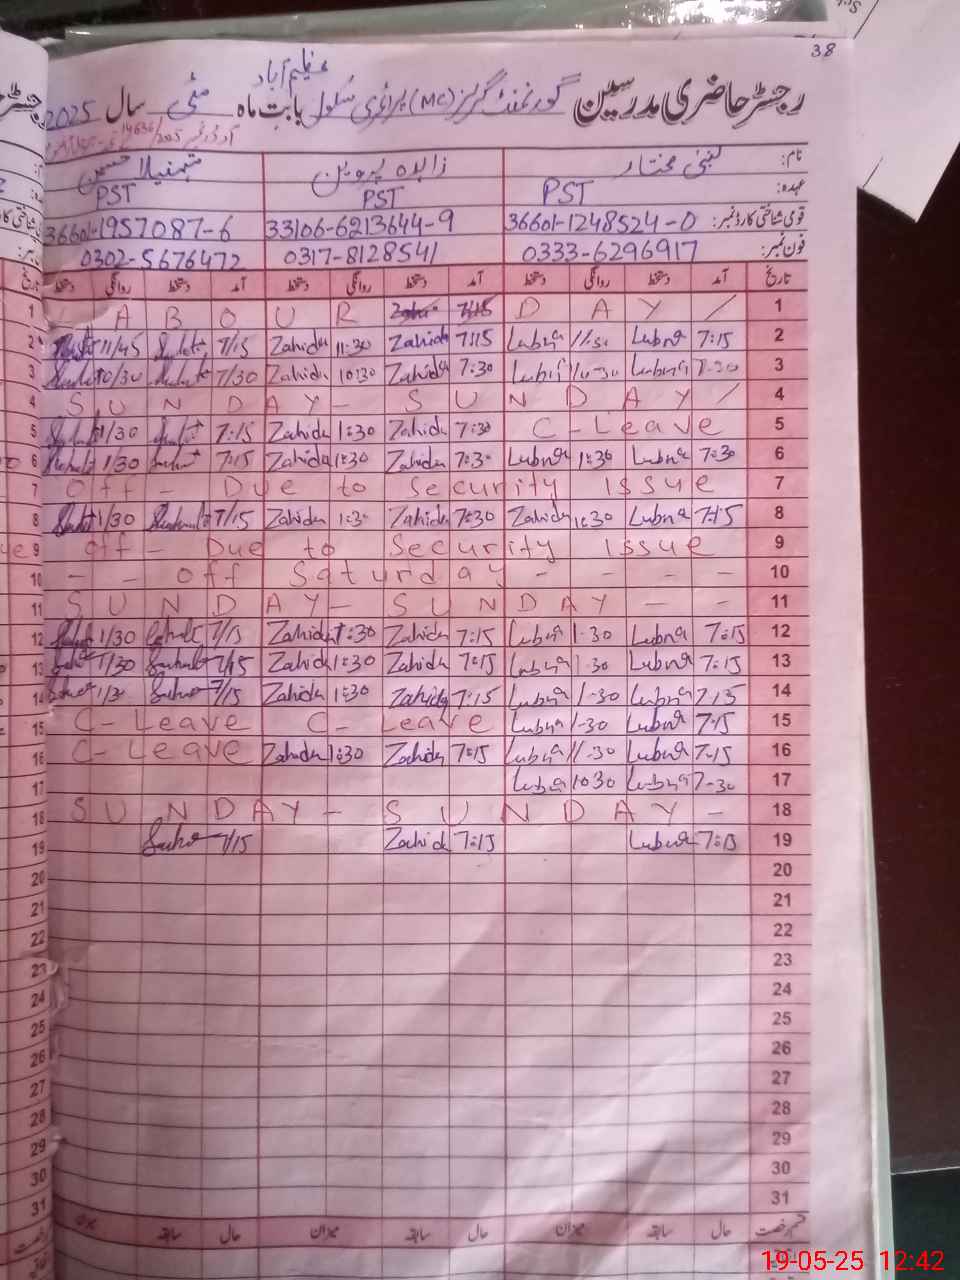 38
عظیم آباد
رجسٹر حاضری مدرسین گورنمنٹ گرلز (MC) پرائمری سکول بابت ماہ مئی سال 2025
نام: لبنیٰ مختار زاہدہ پروین
عہدہ: PST PST PST
قومی شناختی کارڈ نمبر: 36601-1248524-0 33106-6213644-9 36601-1957087-6
فون نمبر: 0333-6296917 0317-8128541 0302-5676472
تاریخ آمد دستخط روانگی دستخط آمد دستخط روانگی دستخط آمد دستخط روانگی دستخط
1 LABOUR Zahida 7:15 DAY / 1
2 11/45 7/15 Zahida 11:30 Zahida 7:15 Lubna 11-30 Lubna 7:15 2
3 10/30 7/30 Zahida 10:30 Zahida 7:30 Lubna 10-30 Lubna 7-30 3
4 SUNDAY- SUNDAY / 4
5 1/30 7:15 Zahida 1:30 Zahida 7:30 C-Leave 5
6 1/30 7:15 Zahida 1:30 Zahida 7:30 Lubna 1:30 Lubna 7:30 6
7 Off - Due to Security Issue 7
8 1/30 7/15 Zahida 1:30 Zahida 7:30 Zahida 1:30 Lubna 7:15 8
9 Off - Due to Security Issue 9
10 - - Off Saturday - - - - 10
11 SUNDAY- SUNDAY - - 11
12 1/30 7/15 Zahida 1:30 Zahida 7:15 Lubna 1-30 Lubna 7:15 12
13 1/30 7/15 Zahida 1:30 Zahida 7:15 Lubna 1-30 Lubna 7:15 13
14 1/30 7/15 Zahida 1:30 Zahida 7:15 Lubna 1-30 Lubna 7:15 14
15 C-Leave C-Leave Lubna 1-30 Lubna 7:15 15
16 C-Leave Zahida 1:30 Zahida 7:15 Lubna 11-30 Lubna 7:15 16
17 Lubna 10 30 Lubna 7-30 17
18 SUNDAY- SUNDAY- 18
19 7/15 Zahida 7:15 Lubna 7:15 19
20 20
21 21
22 22
23 23
24 24
25 25
26 26
27 27
28 28
29 29
30 30
31 31
قسم رخصت حال سابقہ میزان حال سابقہ میزان حال سابقہ میزان
19-05-25 12:42